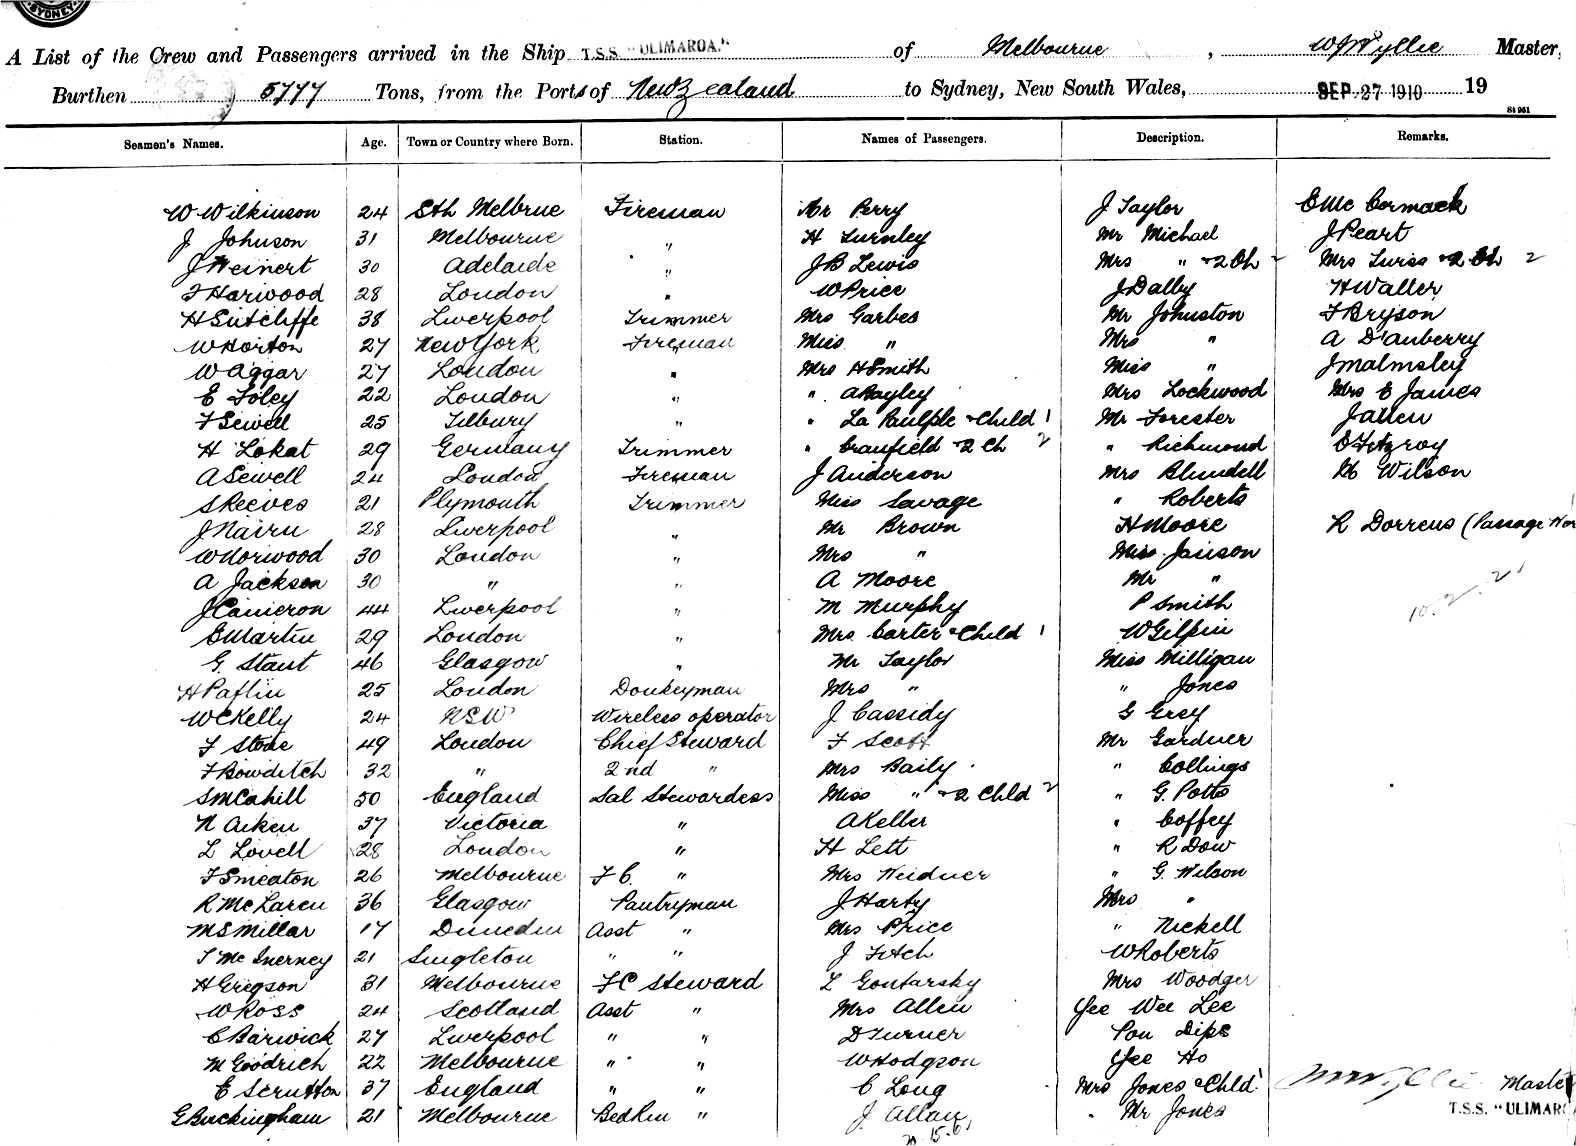 SYDNEY
A List of the Crew and Passengers arrived in the Ship T.S.S. "ULIMAROA." of Melbourne, W J Wyllie Master,
Burthen 5777 Tons, from the Ports of New Zealand to Sydney, New South Wales, SEP 27 1910 19
St 951
Seamen's Names. Age. Town or Country where Born. Station. Names of Passengers. Description. Remarks.
W Wilkinson 24 Sth Melbrne Fireman Mr Perry J Taylor E McCormack
J Johnson 31 Melbourne " H Turnley Mr Michael J Peart
J Weinert 30 Adelaide " J B Lewis Mrs " & 2 Ch Mrs Twiss & 2 Ch 2
F Harwood 28 London " W Price J Dalby H Waller
H Sutcliffe 38 Liverpool Trimmer Mrs Garbes Mr Johnston F Bryson
W Horton 27 New York Fireman Miss " Mrs " A D'auberry
W Aggar 27 London " Mrs H Smith Miss " J Malmsley
E Foley 22 London " " A Bayley Mrs Lockwood Mrs E James
F Sewell 25 Tilbury " " La Paulple & Child 1 Mr Forester J Allen
H Lokat 29 Germany Trimmer " Cranfield & 2 Ch 2 " Richmond O Fitzroy
A Sewell 24 London Fireman J Anderson Mrs Blundell Wilson
S Reeves 21 Plymouth Trimmer Miss Savage " Roberts
J Nairn 28 Liverpool " Mr Brown H Moore R Dorrens (Passage Wor
W Norwood 30 London " Mrs " Miss Janson
A Jackson 30 " " A Moore Mr "
J Cameron 44 Liverpool " M Murphy P Smith
E Martin 29 London " Mrs Carter & Child 1 W Gilpin
G. Stant 46 Glasgow " Mr Taylor Miss Milligan
H Paflin 25 London Donkeyman Mrs " " Jones
W C Kelly 24 NSW Wireless operator J Cassidy G Grey
F Stone 49 London Chief Steward F Scott Mr Gardner
F Bowditch 32 " 2nd " Mrs Baily " Collings
S McCahill 50 England Sal Stewardess Miss " & 2 Chld 2 " G. Potts
N Aiken 37 Victoria " A Keller " Coffey
L Lovell 28 London " H Lett " R Dow
F Smeaton 26 Melbourne F C. " Mrs Weidner " G. Wilson
R McLaren 36 Glasgow Pantryman J Harty Mrs "
M S Millar 17 Dunedin Asst " Mrs Price " Nickell
T McInerney 21 Singleton " " J Fitch W Roberts
H Gregson 31 Melbourne F C Steward L Gontarsky Mrs Woodger
W Ross 24 Scotland Asst " Mrs Allen Yee Wee Lee
C Barwick 27 Liverpool " " D Turner Pon Dips
M Goodrich 22 Melbourne " " W Hodgson Yee Ho
E Scrutton 37 England " " C Long Mrs Jones & Chld 1 Master
G Buckingham 21 Melbourne Bedrm " J. Allan " Mr Jones T.S.S. "ULIMAROA
10. 2. 21
15. 6.